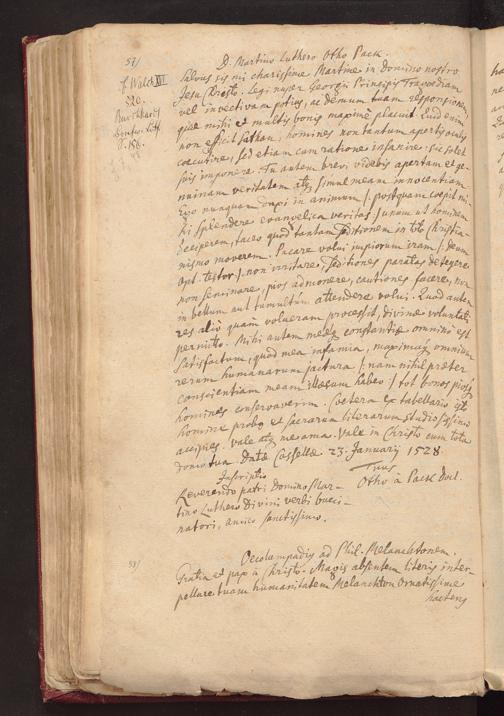 57/
D. Martino Luthero Otho Pack.
f. Walch XVI
520.
Burckhardt
Briefw. Luth.
S. 156.
Salvus sis mi charissime Martine in domino nostro
Jesu Christo. Legi nuper Georgii Principis
vel invectivam potius, ac demum tuam responsionem,
quae mihi et multis bonis maxime placuit. Quid enim
non efficit Sathan, homines non tantum apertis oculis
coecutire, sed etiam cum ratione insanire: sic solet
suis imponere. Tu autem brevi videbis apertam et ge-
nuinam veritatem atq simul meam innocentiam.
Ego nunquam duxi in animum /: postquam coepit mi-
hi splendere evangelica veritas :/ unum ut hominem
deciperem, taceo quod tantam seditionem in Christia-
nismo moverem. Placare volui impiorum iram /: deum
opt. testor :/, non irritare, seditiones paratas detegere
non seminare, pios admonere, cautiones facere, non
in bellum aut tumultum attendere volui. Quod autem
res alio quam volueram processit, divinae voluntati
permitto. Mihi autem meaeq constantiae omnino est
satisfactum, quod mea infamia, maximaq omnium
rerum humanarum jactura /: nam nihil praeter
conscientiam meam illesum habeo :/ tot bonos piosq
homines conservaverim. Coetera ex tabellario isto
homine probo et sacrarum literarum studiosissimo
accipies. Vale atq me ama. Vale in Christo cum tota
domo tua. Datae Cassellae 23. Januarij 1528.
Tuus
Otho à Pack Doct.
Inscriptio
Reverendo patri domino Mar-
tino Luthero divini verbi bucci-
natori, amico sanctissimo.
58/
Oecolampadius ad Phil. Melanchtonem.
Gratia et pax à Christo. Magis absentem literis inter-
pellare tuam humanitatem Melanchton ornatissime
hactenus